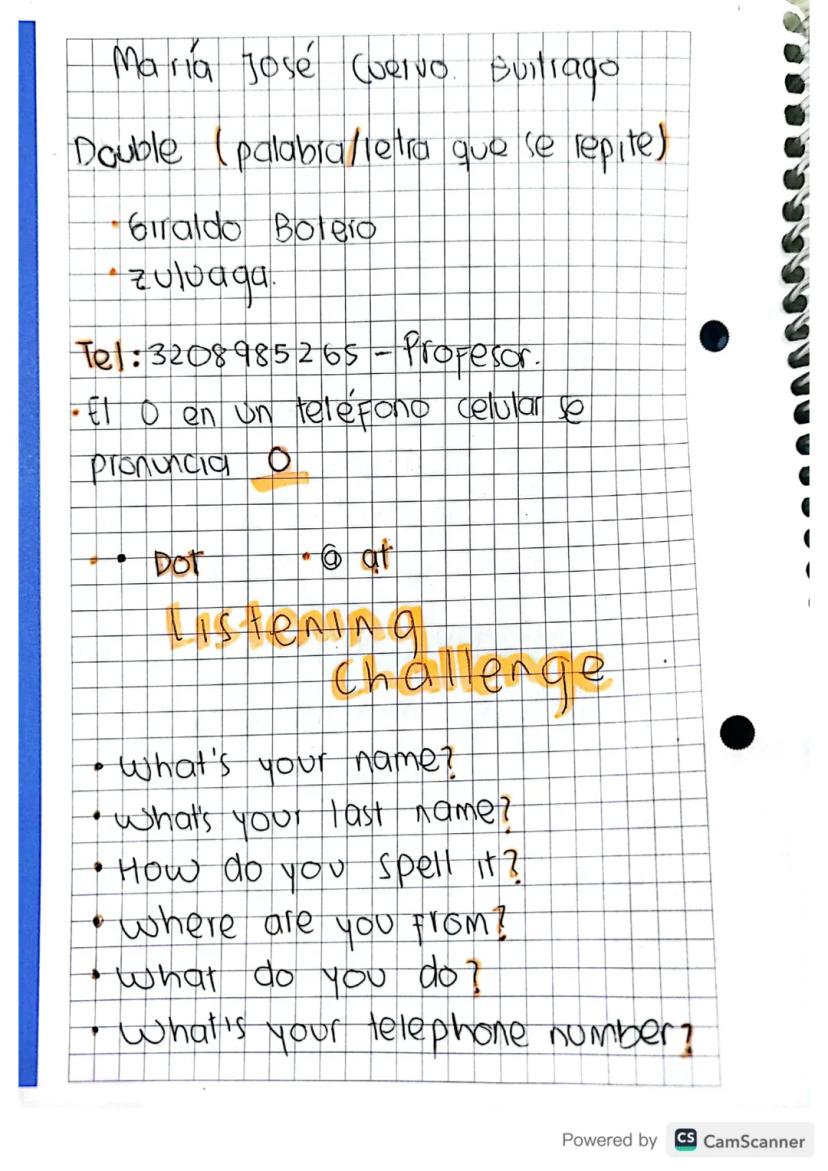 María José Cuervo. Buitrago
Double (palabra/letra que se repite)
• Giraldo Botero
• Zuluaga.
Tel: 3208985265 - Profesor.
• El 0 en un teléfono celular se
pronuncia O
• • Dot • @ at
Listening
challenge
• What's your name?
• What's your last name?
• How do you spell it?
• Where are you from?
• What do you do?
• What's your telephone number?
Powered by CS CamScanner